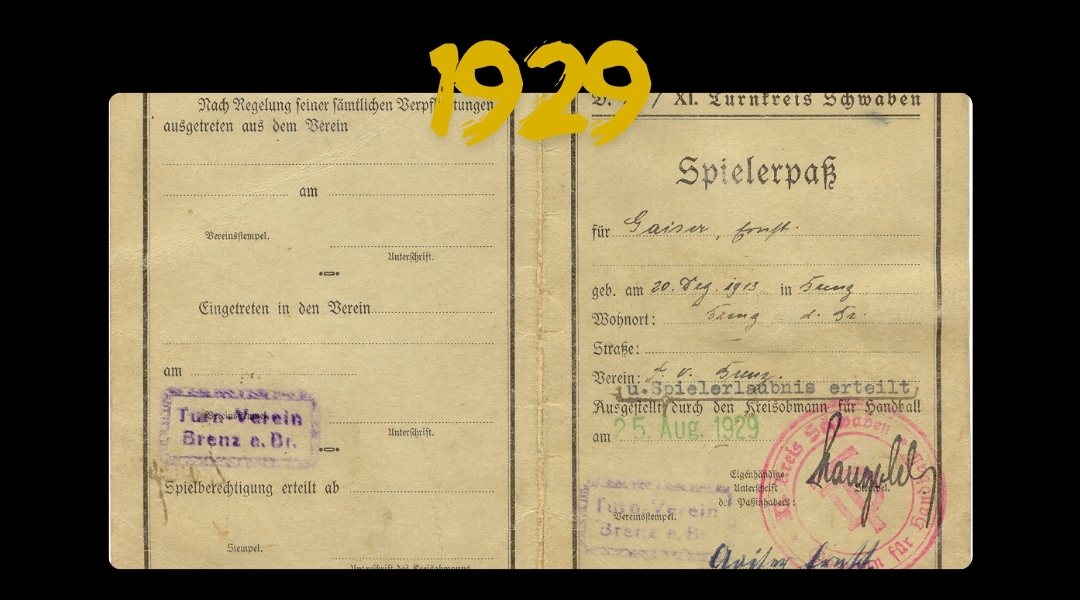 1929
Nach Regelung seiner sämtlichen Verpflichtungen
ausgetreten aus dem Verein
am
Vereinsstempel.
Unterschrift.
Eingetreten in den Verein
am
Turn-Verein
Brenz a. Br.
Unterschrift.
Spielberechtigung erteilt ab
Stempel.
Unterschrift des Kreisobmanns
XI. Turnkreis Schwaben
Spielerpaß
für Gaiser, Ernst.
geb. am 20. Dez. 1913 in Brenz
Wohnort: Brenz a. Br.
Straße:
Verein: T. V. Brenz.
u. Spielerlaubnis erteilt,
Ausgestellt durch den Kreisobmann für Handball
am 25. Aug. 1929
Kreis Schwaben
Eigenhändige
Unterschrift
des Paßinhabers:
Stempel.
Turn-Verein
Vereinsstempel.
Brenz a. Br.
Gaiser Ernst